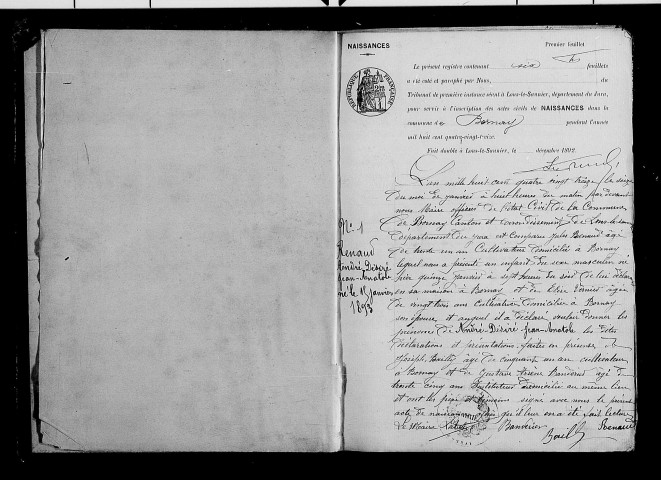 NAISSANCES
Premier feuillet
Le présent registre contenant six feuillets
a été coté et paraphé par Nous, du
Tribunal de première instance séant à Lons-le-Saunier, département du Jura,
pour servir à l'inscription des actes civils de NAISSANCES dans la
commune de Bornay pendant l'année
mil huit cent quatre-vingt-treize.
Fait double à Lons-le-Saunier, le décembre 1892.
RÉPUBLIQUE FRANÇAISE
No 1
Renaud
André Désiré
Jean-Anatole
né le 15 janvier
1893
L'an mille huit cent quatre vingt treize, le seize
du moi de janvier à huit heures du matin par devant
nous Maire officier de l'état Civil de la Commune
de Bornay Canton et arrondissement de Lons-le-Saunier
département du Jura est comparu Jules Renaud âgé
de trente un ans Cultivateur domicilié à Bornay
lequel nous a présenté un enfant du sexe masculin né
hier quinze janvier à sept heures du soir de lui déclarant
en sa maison à Bornay et de âgée
de vingt trois ans Cultivatrice Domiciliée à Bornay
son épouse et auquel il a déclaré vouloir donner les
prénoms de André-Désiré-Jean-Anatole les dites
déclarations et présentations faites en présence de
Joseph Bailly âgé de cinquante un ans cultivateur
à Bornay et de Gustave âgé de
trente cinq ans Instituteur domicilié au même lieu
et ont les père et témoins signé avec nous le présent
acte de naissance après qu'il leur en a été fait lecture
Le Maire Renaud